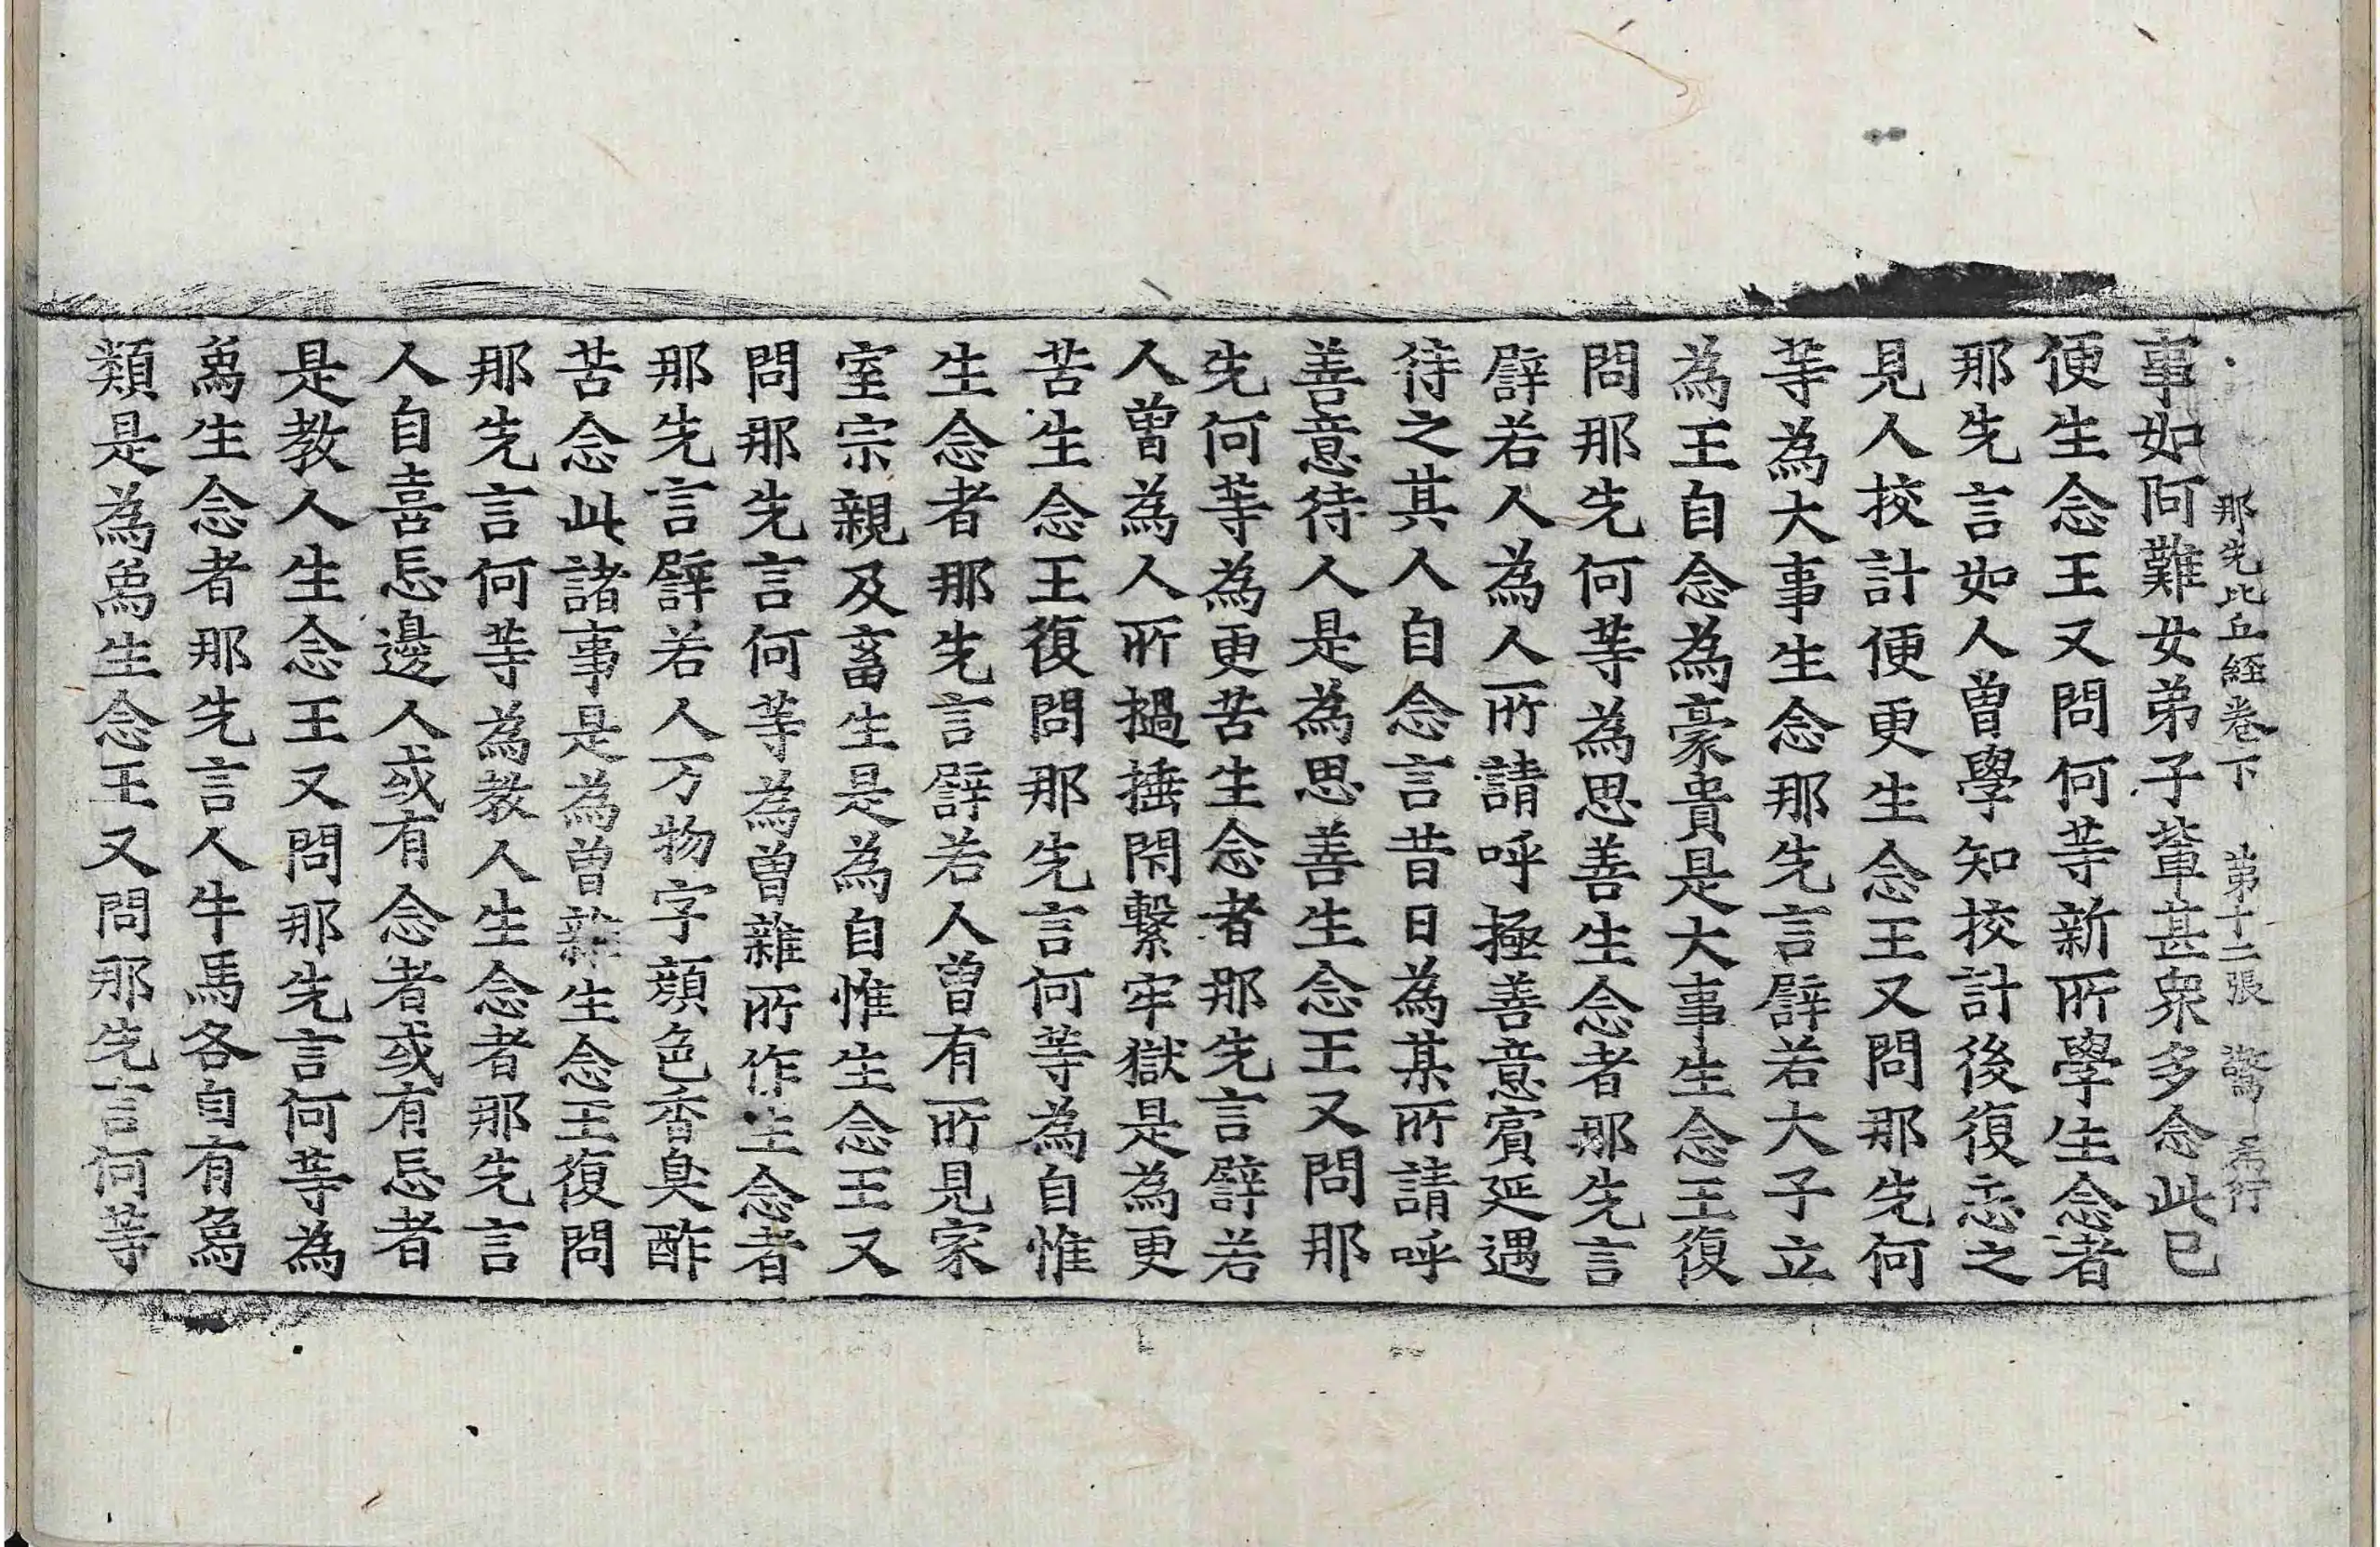 那先比丘経卷下　第十二張　驚
事如阿難女弟子軰甚衆多念此已
便生念王又問何等新所學生念者
那先言如人曽學知挍計後復忘之
見人挍計便更生念王又問那先何
等為大事生念那先言譬若大子立
為王自念為豪貴是大事生念王復
問那先何等為思善生念者那先言
譬若人為人所請呼極善意賔延遇
待之其人自念言昔日為某所請呼
善意待人是為思善生念王又問那
先何等為更苦生念者那先言譬若
人曽為人所撾捶閇繫牢獄是為更
苦生念王復問那先言何等為自惟
生念者那先言譬若人曽有所見家
室宗親及畜生是為自惟生念王又
問那先言何等為曽雜所作生念者
那先言譬若人万物字顔色香臭酢
苦念此諸事是為曽雜生念王復問
那先言何等為教人生念者那先言
人自喜忘邊人或有念者或有忘者
是教人生念王又問那先言何等為
為生念者那先言人牛馬各自有為
類是為為生念王又問那先言何等